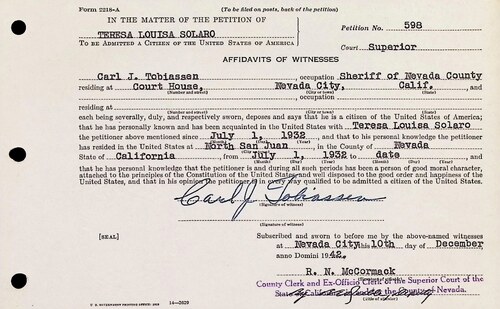 Form 2218-A
(To be filed on posts, back of the petition)
IN THE MATTER OF THE PETITION OF
Petition No. 598
TERESA LOUISA SOLARO
To be Admitted a Citizen of the United States of America
Court Superior
AFFIDAVITS OF WITNESSES
Carl J. Tobiassen, occupation Sheriff of Nevada County
residing at Court House, Nevada City, Calif.
(Number and street) (City or town) (State)
, occupation
residing at
(Number and street) (City or town) (State)
each being severally, duly, and respectively sworn, deposes and says that he is a citizen of the United States of America;
that he has personally known and has been acquainted in the United States with Teresa Louisa Solaro
the petitioner above mentioned since July 1, 1932, and that to his personal knowledge the petitioner
(Month) (Day) (Year)
has resided in the United States at North San Juan, in the County of Nevada
State of California, from July 1, 1932 to date
(Month) (Day) (Year) (Month) (Day) (Year)
and that he has personal knowledge that the petitioner is and during all such periods has been a person of good moral character,
attached to the principles of the Constitution of the United States and well disposed to the good order and happiness of the
United States, and that in his opinion the petitioner is in every way qualified to be admitted a citizen of the United States.
Carl J Tobiassen
(Signature of witness)
(Signature of witness)
Subscribed and sworn to before me by the above-named witnesses
[SEAL]
at Nevada City this 10th day of December
anno Domini 1942.
R. N. McCormack
County Clerk and Ex-Officio Clerk of the Superior Court of the
State of California, in and for the County of Nevada.
(Title of officer)
U. S. GOVERNMENT PRINTING OFFICE 14—2629